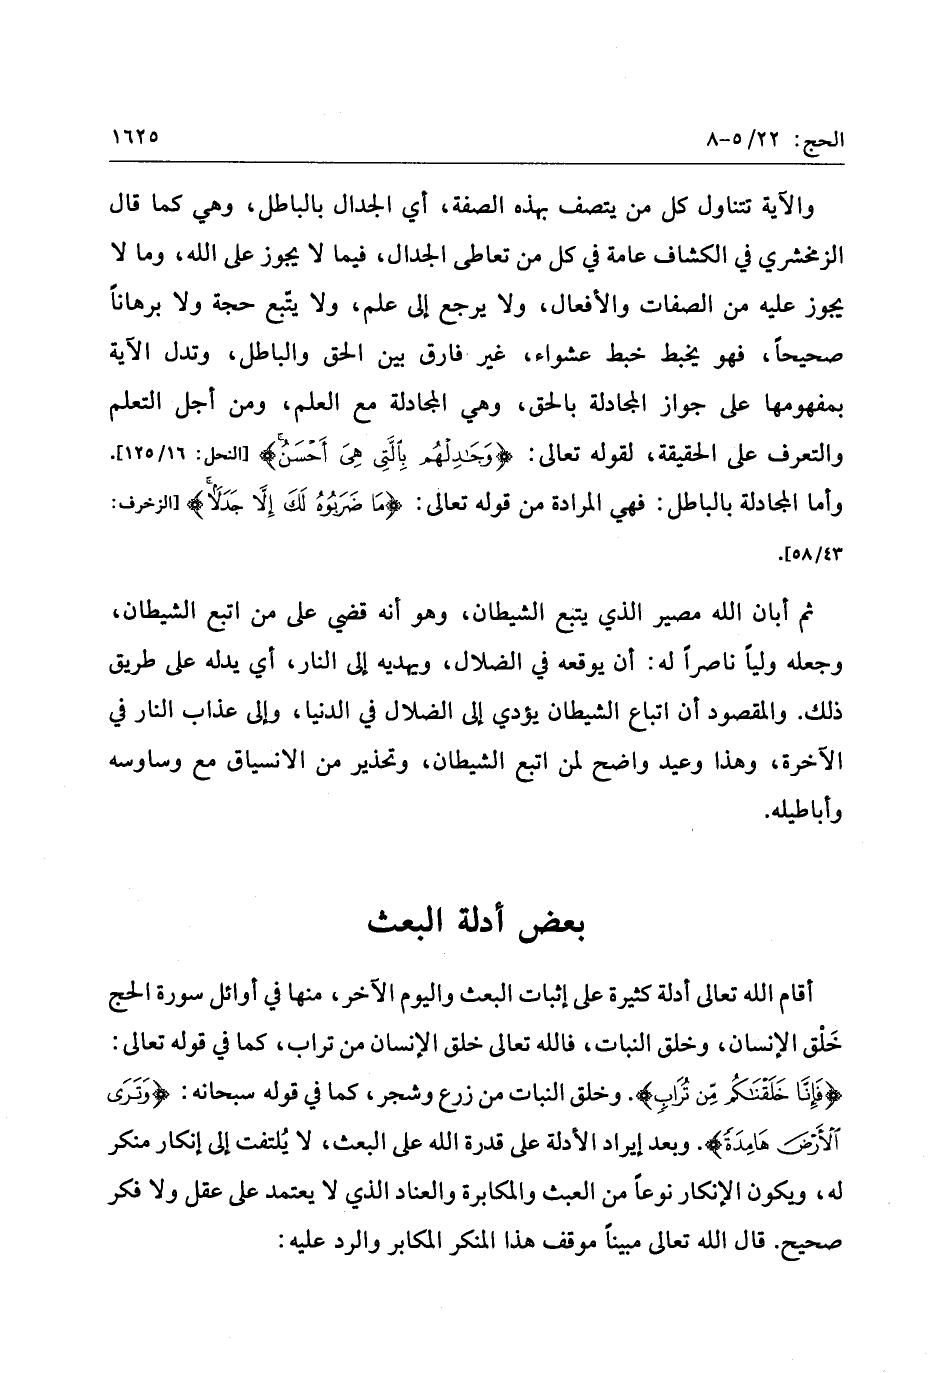 الحج: ٢٢/ ٥-٨ ١٦٢٥
والآية تتناول كل من يتصف بهذه الصفة، أي الجدال بالباطل، وهي كما قال
الزمخشري في الكشاف عامة في كل من تعاطى الجدال، فيما لا يجوز على الله، وما لا
يجوز عليه من الصفات والأفعال، ولا يرجع إلى علم، ولا يتّبع حجة ولا برهاناً
صحيحاً، فهو يخبط خبط عشواء، غير فارق بين الحق والباطل، وتدل الآية
بمفهومها على جواز المجادلة بالحق، وهي المجادلة مع العلم، ومن أجل التعلم
والتعرف على الحقيقة، لقوله تعالى: ﴿وَجَٰدِلْهُم بِٱلَّتِي هِيَ أَحْسَنُۚ﴾ [النحل: ١٢٥/١٦].
وأما المجادلة بالباطل: فهي المرادة من قوله تعالى: ﴿مَا ضَرَبُوهُ لَكَ إِلَّا جَدَلَۢاۚ﴾ [الزخرف:
٥٨/٤٣].
ثم أبان الله مصير الذي يتبع الشيطان، وهو أنه قضي على من اتبع الشيطان،
وجعله ولياً ناصراً له: أن يوقعه في الضلال، ويهديه إلى النار، أي يدله على طريق
ذلك. والمقصود أن اتباع الشيطان يؤدي إلى الضلال في الدنيا، وإلى عذاب النار في
الآخرة، وهذا وعيد واضح لمن اتبع الشيطان، وتحذير من الانسياق مع وساوسه
وأباطيله.
بعض أدلة البعث
أقام الله تعالى أدلة كثيرة على إثبات البعث واليوم الآخر، منها في أوائل سورة الحج
خَلْق الإنسان، وخلق النبات، فالله تعالى خلق الإنسان من تراب، كما في قوله تعالى:
﴿فَإِنَّا خَلَقْنَٰكُم مِّن تُرَابٍ﴾. وخلق النبات من زرع وشجر، كما في قوله سبحانه: ﴿وَتَرَى
ٱلْأَرْضَ هَامِدَةً﴾. وبعد إيراد الأدلة على قدرة الله على البعث، لا يُلتفت إلى إنكار منكر
له، ويكون الإنكار نوعاً من العبث والمكابرة والعناد الذي لا يعتمد على عقل ولا فكر
صحيح. قال الله تعالى مبيناً موقف هذا المنكر المكابر والرد عليه: